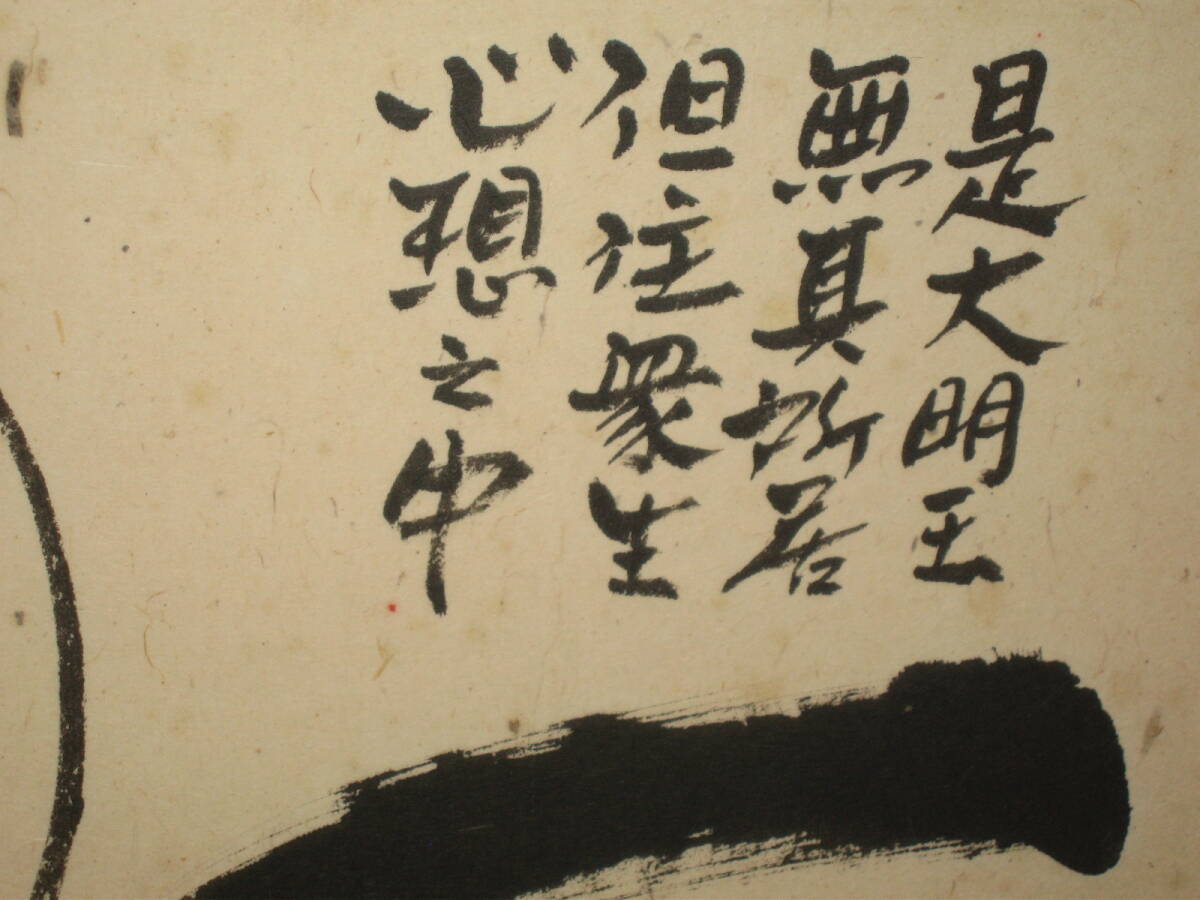 是大明王
無其所居
但住衆生
心想之中